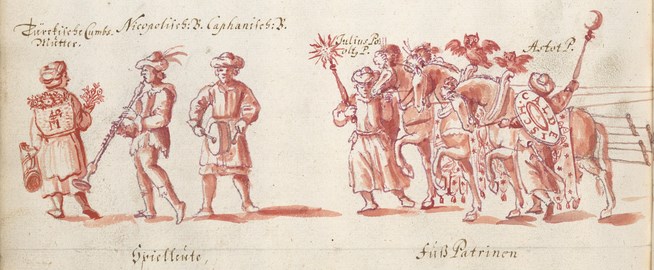 Türckische Cumbs
Mutter.
Nicopolisch: B. Caphanisch: B.
Julius Po
P.
Astot P.
Spielleute,
Füß Patrinen